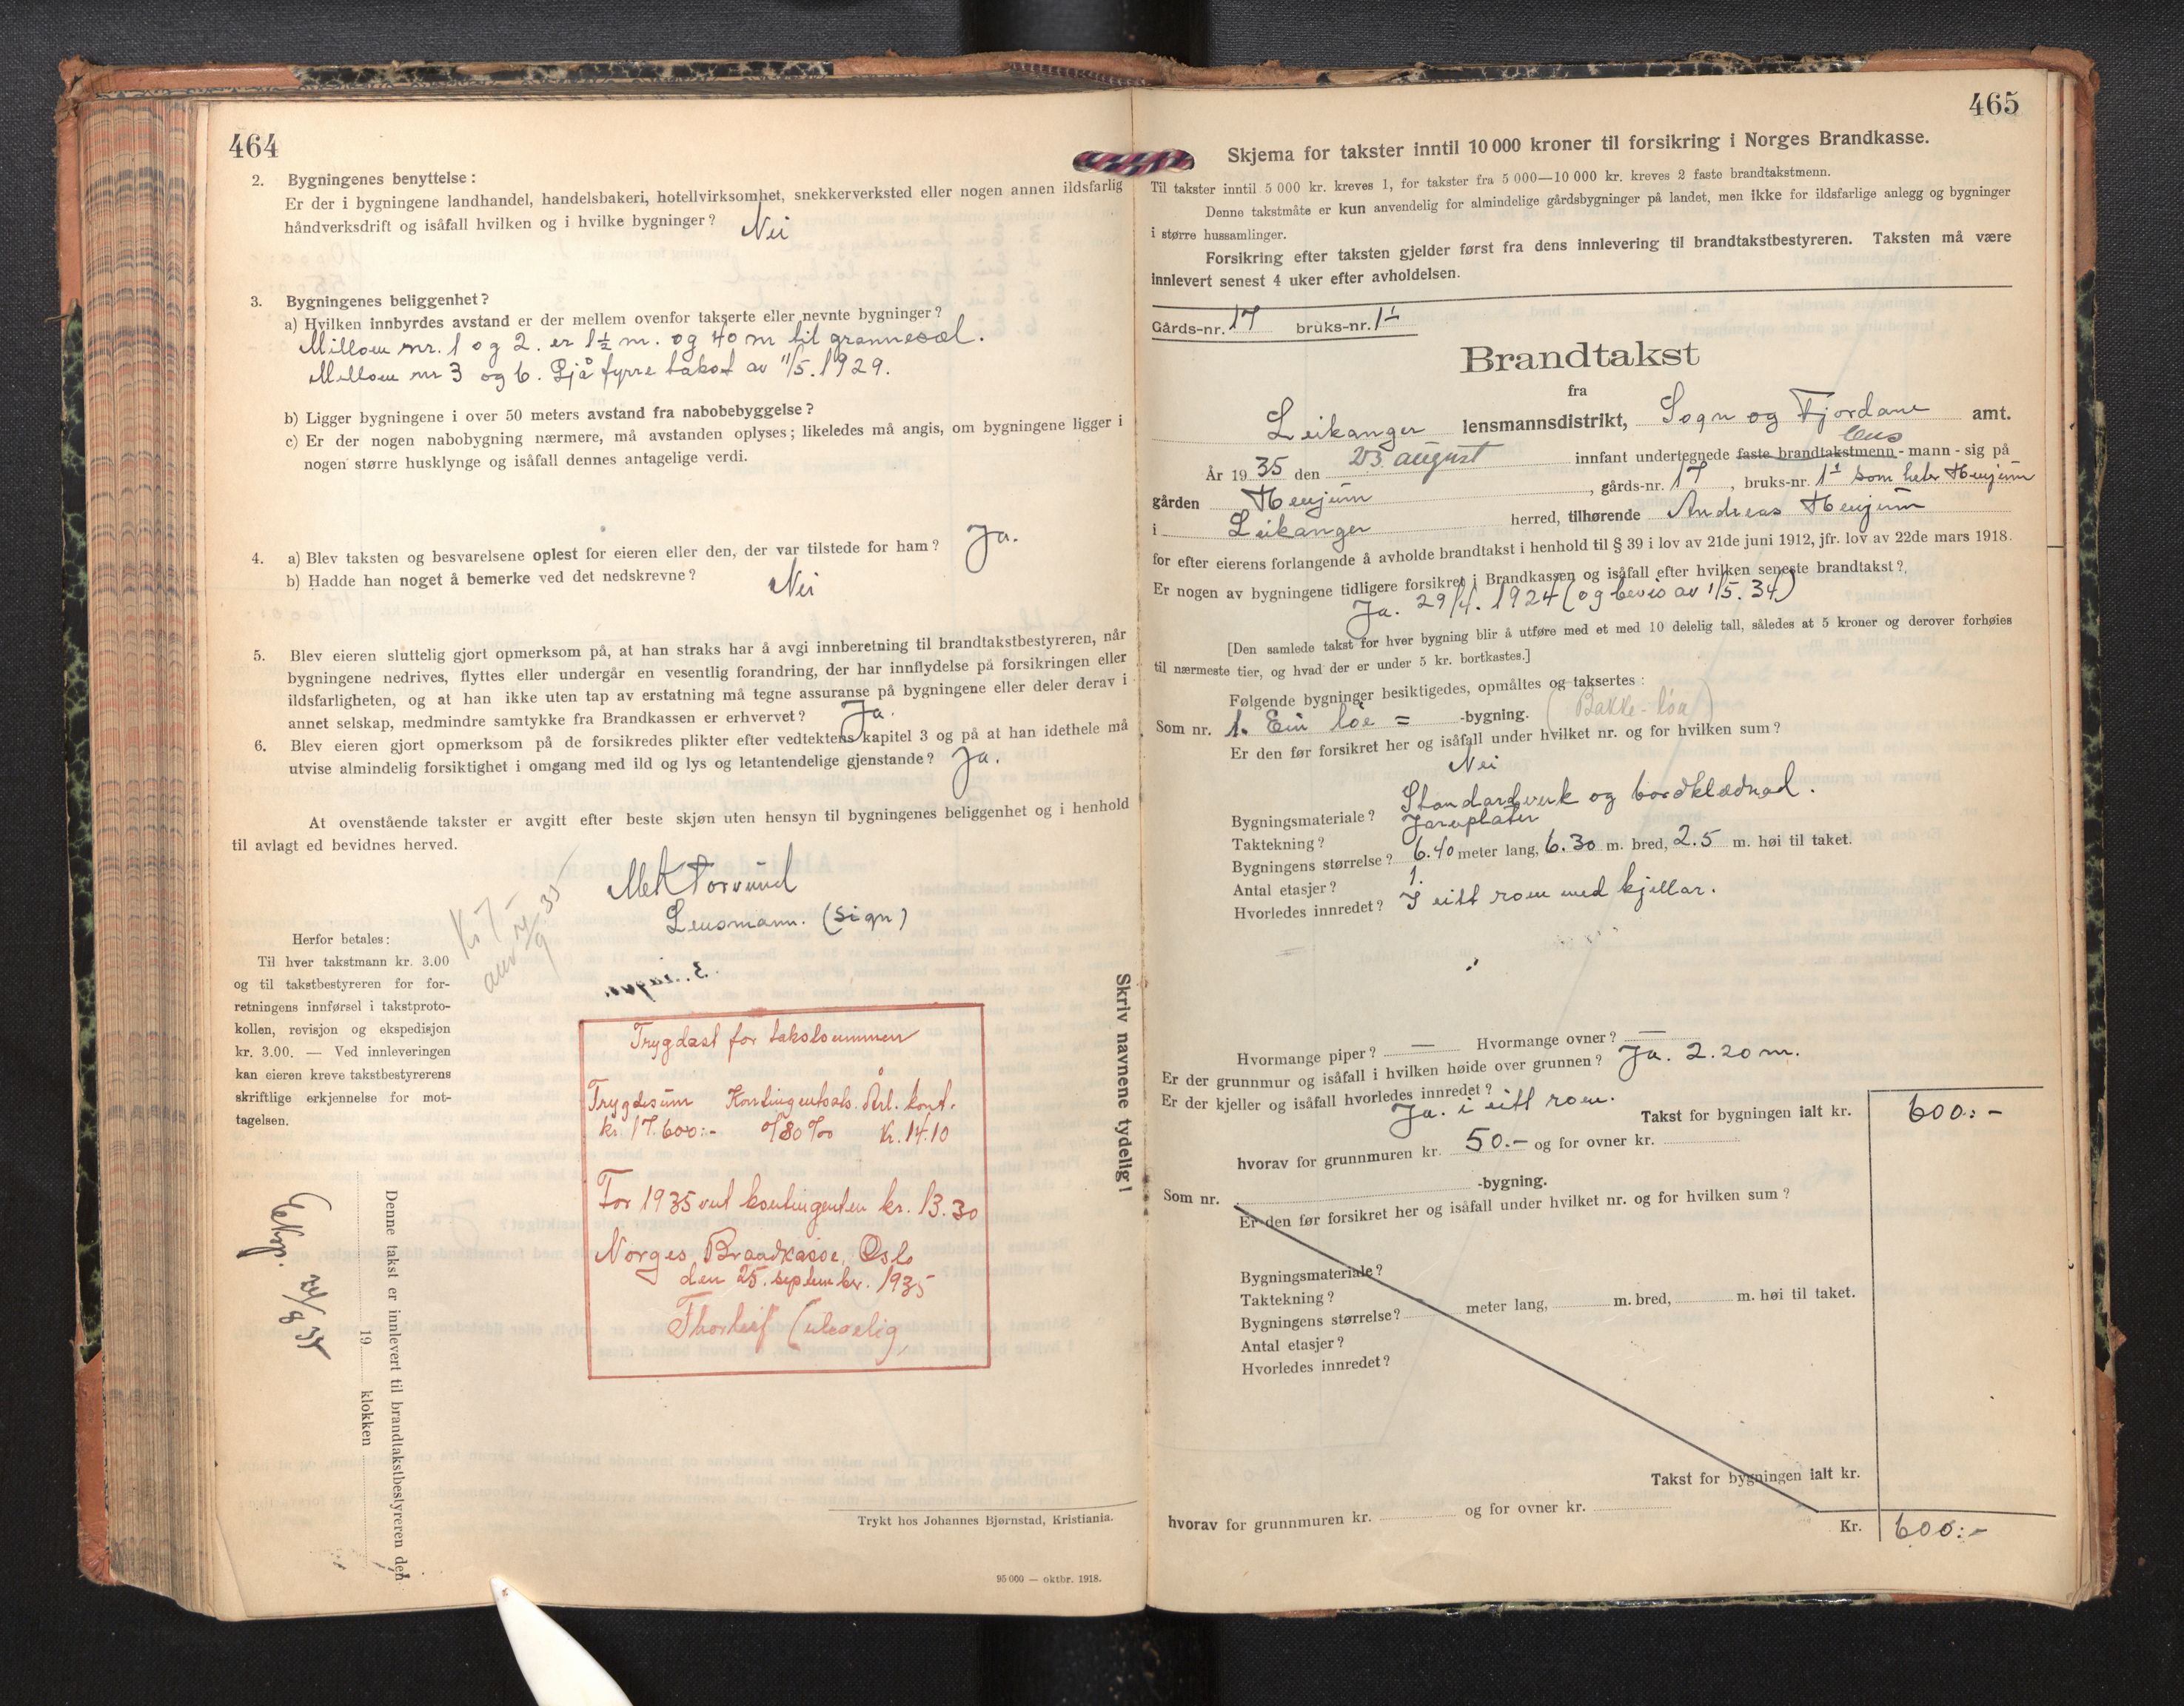 464
2. Bygningenes benyttelse:
Er der i bygningene landhandel, handelsbakeri, hotellvirksomhet, snekkerverksted eller nogen annen ildsfarlig
håndverksdrift og isåfall hvilken og i hvilke bygninger? Nei
3. Bygningenes beliggenhet?
a) Hvilken innbyrdes avstand er der mellem ovenfor takserte eller nevnte bygninger?
Millom nr. 1 og 2. er 1½ m. og 40 m til grannesæl.
Millom nr 3 og 6. Sjå fyrre takst av 11/5. 1929.
b) Ligger bygningene i over 50 meters avstand fra nabobebyggelse?
c) Er der nogen nabobygning nærmere, må avstanden oplyses; likeledes må angis, om bygningene ligger i
nogen større husklynge og isåfall dennes antagelige verdi.
4. a) Blev taksten og besvarelsene oplest for eieren eller den, der var tilstede for ham? Ja.
b) Hadde han noget å bemerke ved det nedskrevne? Nei
5. Blev eieren sluttelig gjort opmerksom på, at han straks har å avgi innberetning til brandtakstbestyreren, når
bygningene nedrives, flyttes eller undergår en vesentlig forandring, der har innflydelse på forsikringen eller
ildsfarligheten, og at han ikke uten tap av erstatning må tegne assuranse på bygningene eller deler derav i
annet selskap, medmindre samtykke fra Brandkassen er erhvervet? Ja.
6. Blev eieren gjort opmerksom på de forsikredes plikter efter vedtektens kapitel 3 og på at han idethele må
utvise almindelig forsiktighet i omgang med ild og lys og letantendelige gjenstande? Ja.
At ovenstående takster er avgitt efter beste skjøn uten hensyn til bygningenes beliggenhet og i henhold
til avlagt ed bevidnes herved.
Lensmann. (sign)
Kr 7 -
Herfor betales:
Til hver takstmann kr. 3.00
og til takstbestyreren for for-
retningens innførsel i takstproto-
kollen, revisjon og ekspedisjon
kr. 3.00. — Ved innleveringen
kan eieren kreve takstbestyrerens
skriftlige erkjennelse for mot-
tagelsen.
Trygdast for takstsummen
Trygdesum Kontingentsats. Årl. kont.
kr. 17.600:- 0/80 ‰ kr. 14.10
For 1935 vert kontingenten kr. 13.30
Norges Brandkasse, Oslo
den 25. september. 1935
Thorleif
Denne takst er innlevert til brandtakstbestyreren den
19 klokken
Skriv navnene tydelig!
Trykt hos Johannes Bjørnstad, Kristiania.
95 000 — oktbr. 1918.
465
Skjema for takster inntil 10 000 kroner til forsikring i Norges Brandkasse.
Til takster inntil 5 000 kr. kreves 1, for takster fra 5 000—10 000 kr. kreves 2 faste brandtakstmenn.
Denne takstmåte er kun anvendelig for almindelige gårdsbygninger på landet, men ikke for ildsfarlige anlegg og bygninger
i større hussamlinger.
Forsikring efter taksten gjelder først fra dens innlevering til brandtakstbestyreren. Taksten må være
innlevert senest 4 uker efter avholdelsen.
Gårds-nr. 17 bruks-nr. 1
Brandtakst
fra
Leikanger lensmannsdistrikt, Sogn og Fjordane amt.
År 1935 den 23. august innfant undertegnede faste brandtakstmenn lens - mann - sig på
gården Henjum, gårds-nr. 17, bruks-nr. 1 som heter Henjum
i Leikanger herred, tilhørende Andreas Henjum
for efter eierens forlangende å avholde brandtakst i henhold til § 39 i lov av 21de juni 1912, jfr. lov av 22de mars 1918.
Er nogen av bygningene tidligere forsikret i Brandkassen og isåfall efter hvilken seneste brandtakst?
Ja. 29/4. 1924 (og bevis av 1/5. 34)
[Den samlede takst for hver bygning blir å utføre med et med 10 delelig tall, således at 5 kroner og derover forhøies
til nærmeste tier, og hvad der er under 5 kr. bortkastes.]
Følgende bygninger besiktigedes, opmåltes og taksertes:
Som nr. 1. Ein løe = -bygning. (Bakke-løa)
Er den før forsikret her og isåfall under hvilket nr. og for hvilken sum?
Nei
Bygningsmateriale? Standardverk og bordklædnad.
Taktekning? Jarnplater
Bygningens størrelse? 6.40 meter lang, 6.30 m. bred, 2.5 m. høi til taket.
Antal etasjer? 1.
Hvorledes innredet? I eitt rom med kjellar.
Hvormange piper? — Hvormange ovner? —
Er der grunnmur og isåfall i hvilken høide over grunnen? Ja. 2.20 m.
Er der kjeller og isåfall hvorledes innredet?
Ja. i eitt rom.
Takst for bygningen ialt kr. 600:-
hvorav for grunnmuren kr. 50.- og for ovner kr.
Som nr. -bygning.
Er den før forsikret her og isåfall under hvilket nr. og for hvilken sum?
Bygningsmateriale?
Taktekning?
Bygningens størrelse? meter lang, m. bred, m. høi til taket.
Antal etasjer?
Hvorledes innredet?
Takst for bygningen ialt kr.
hvorav for grunnmuren kr. og for ovner kr.
Kr. 600:-